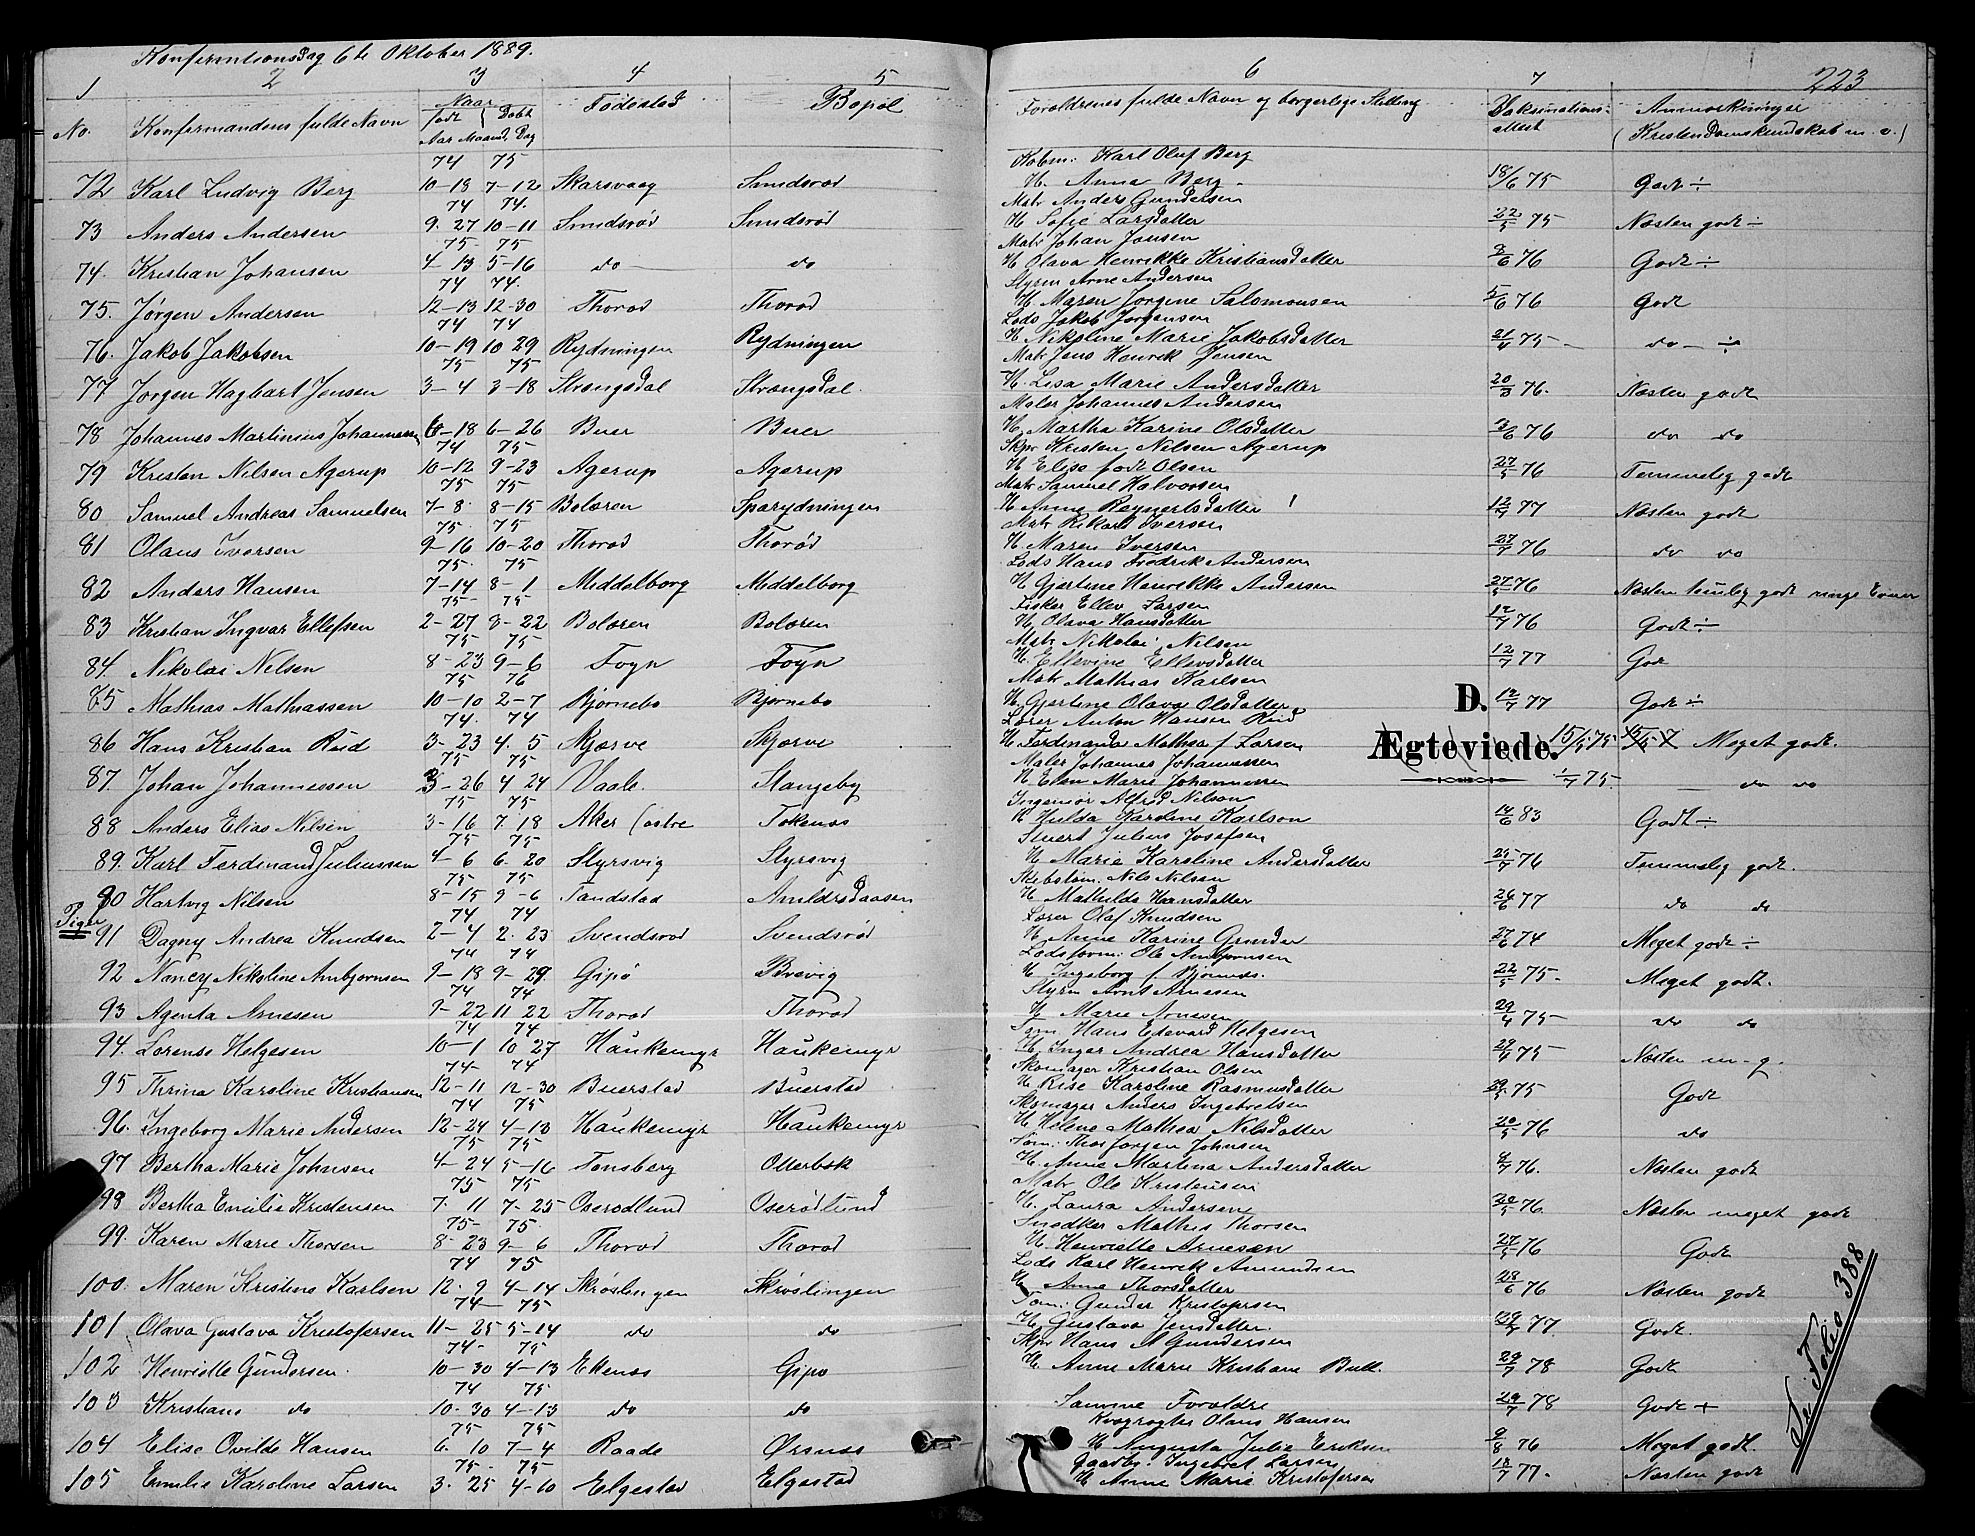 Konfirmtionsdag 6te Oktober 1889.
1 2 3 4 5 6 7 223
No. Konfirmandens fulde Navn Naar født Døbt Aar Maaned, Dag Fødested Bopæl Forældrenes fulde Navn og borgerlige Stilling Vaksinations-attest Anmærkninger (Kristendomskundskab m. v.)
74 75 Kobm: Karl Oluf Berg
72 Karl Ludvig Berg 10-18 7-12 Skarsvaag Smidsrød H. Anna Berg 18/6 75 Godt ÷
74 74. Matr Anders Gundersen
73 Anders Andersen 9. 27 10-11 Smidsrød Smidsrød H Sofie Larsdatter 22/5 75 Næsten godt ÷
75- 75 Matr Johan Jonsen
74. Kristian Johansen 4-13 5-16 do do H Olava Henrikke Kristiansdatter 76 Godt ÷
74 74. Styrm Arne Andersen
75. Jørgen Andersen 12-13 12-30 Thorød Thorød H. Maren Jorgine Salomonsen 5/6 76 Godt
74 74 Lods Jakob Jorgensen
76. Jakob Jakobsen 10-19 10 29 Rydningen Rydningen H Nikoline Marie Jakobsdatter 21/4 75- do - ÷
75 75 Matr Jens Henrik Jensen
77 Jørgen Hagbart Jensen 3-4 3-18 Strængsdal Strængsdal. H. Lisa Marie Andersdatter 20/3 76. Næsten godt
Maler Johannes Andersen
78 Johannes Martinius Johannessen 6-18 6-26 Buer Buer H. Martha Karine Olsdatter 76 do do
74 75 Skpr Kristen Nilsen Agerup
79 Kristen Nilsen Agerup 10-12 9-23 Agerup Agerup H Elise født Olsen 27/5 76 Temmelig godt
75 75 Matr Samuel Halvorsen
80 Samuel Andreas Samuelsen 7-8. 8-15 Bolæren Sparydningen H Anne Reynertsdatter 12/7 77 Næsten godt
75. 75 Matr Rikart Iversen
81 Olaus Iversen 9-16 10-20 Thorød Thorød H. Maren Iversen 27/7 76 do do
75. 75 Lods Hans Fredrik Andersen
82 Anders Hansen 7-14 8-1 Middelborg Middelborg H Gjertine Henrikke Andersen 27/5 76 Næsten temlig godt ringe Evner
75- 75 Fisker Ellev Larsen
83 Kristian Ingvar Ellefsen 2-27 3-22 Bolæren Bolæren H. Olava Hansdatter 12/7 76 Godt ÷
75 75 Matr Nikolai Nilsen
84. Nikolai Nilsen 8-23 9-6 Føyn Føyn H. Ellevine Ellevsdatter 12/7 77 Godt
75 76 Matr Mathias Karlsen
85 Mathias Mathiassen 10-10 2-7 Bjørnebo Bjørnebo H. Gjertine Olava Olsdatter D. 12/7 77 Godt ÷
74. 74 Lærer Anton Hansen Rüd
86 Hans Kristian Rüd 3-23 4. 5 Skjærve Skjærve H Ferdinanda Mathea f Larsen Ægteviede. 15/5 75 Meget godt.
75 75 Maler Johannes Johannessen
87. Johan Johannessen 3-26 4 24 Vaale. Stangeby H. Elen Marie Johannessen 1/7 75. do do
75 75 Ingeniør Alfred Nilson
88 Anders Elias Nilsen 3-16 7 18 Aker (østre Tokenæs H Hulda Karoline Karlson 14/6 83 Godt ÷
75 75 Stuert Julius Josefsen
89. Karl Ferdinand Juliussen 4-6 6. 20 Styrsvig Styrsvig H Marie Karoline Andersdatter 25/7 76 Temmelig godt.
75 75 Skibstøm. Nils Nilsen
90 Hartvig Nilsen 8-15 9-6 Tandstad Arnildrsdaasen H Mathilde Hansdatter 26/6 77 do do
Piger 74 74 Lærer Olaf Knudsen
91 Dagny Andrea Knudsen 2-4 2. 23 Svendsrød Svendsrød H Anne Karine Grinder 27/6 74 Meget godt ÷
74 74 Lodsform: Ole Ambjørnsen
92 Nancy Nikoline Ambjørnsen 9-18 9-29 Gipø Brevig H Ingeborg f Bjønnes. 22/5 75- Meget godt.
74 74 Styrm Arnt Arnesen
93 Agenta Arnesen 9-22 11 22 Thorød Thorød H Marie Arnesen 29/4 75 do do
74 74 Tøm. Hans Edevard Helgesen
94. Lorense Helgesen 10-1 10 27 Haukemyr Haukemyr H. Inger Andrea Hansdatter 75- Næsten m-g.
74- 74 Skomager Kristian Olsen
95 Thrina Karoline Kristiansen 12-11 12-30 Buerstad Buerstad H. Rise Karoline Rasmusdatter 75 Godt
74 75 Skomager Anders Ingebretsen
96. Ingeborg Marie Andersen 12-24 4-18 Haukemyr Haukemyr H Helene Mathea Nilsdatter 20/5 76 do
75 75 Tøm: Thor Jørgen Johnsen
97 Bertha Marie Johnsen 4-24 5-16 Tønsberg Otterbek H. Anne Martina Andersdatter 76. Næsten godt
75 75 Matr Ole Kristensen
98 Bertha Emilie Kristensen 7. 11 7-25 Oserødlund Oserødlund H. Laura Andersen 20/5 76 Næsten meget godt
75- 75 Snedker Mathis Thorsen
99. Karen Marie Thorsen 8-23 9-6 Thorød Thorød H Henriette Arnesen 27/5 76 Godt
74 75 Lods Karl Henrik Amundsen
100. Maren Kristine Karlsen 12. 9 4-14 Skrøslingen Skrøslingen H Anne Thorsdatter 28/6 76 Næsten godt
74- 75 Tøm: Gunder Kristofersen
101 Olava Gustava Kristofersen 11-25 5-14 do do H Gustava Jensdatter 77. Godt.
74- 75 Skpr Hans A Gundersen
102 Henriette Gundersen. 10-30 4-13 Ekenæs Gipø H Anne Marie Kristiane Bull 29/7 78 Godt
74 75
103 Kristiane do 10. 30 4-13 do do Samme Forældre 29/7 78 Godt +
75 75 Kvægrøgter Olaus Hansen
104 Elise Ovilde Hansen 6. 10 7-4 Raade Ørsnæs H Augusta Julie Eriksen 9/8 76 Meget godt.
75- 75 Gaardbr. Ingebret Larsen
105 Emilie Karoline Larsen 3. 25 4-10 Elgestad Elgestad H Anne Marie Kristofersen 18/7 77- Næsten godt
Til Folio 388